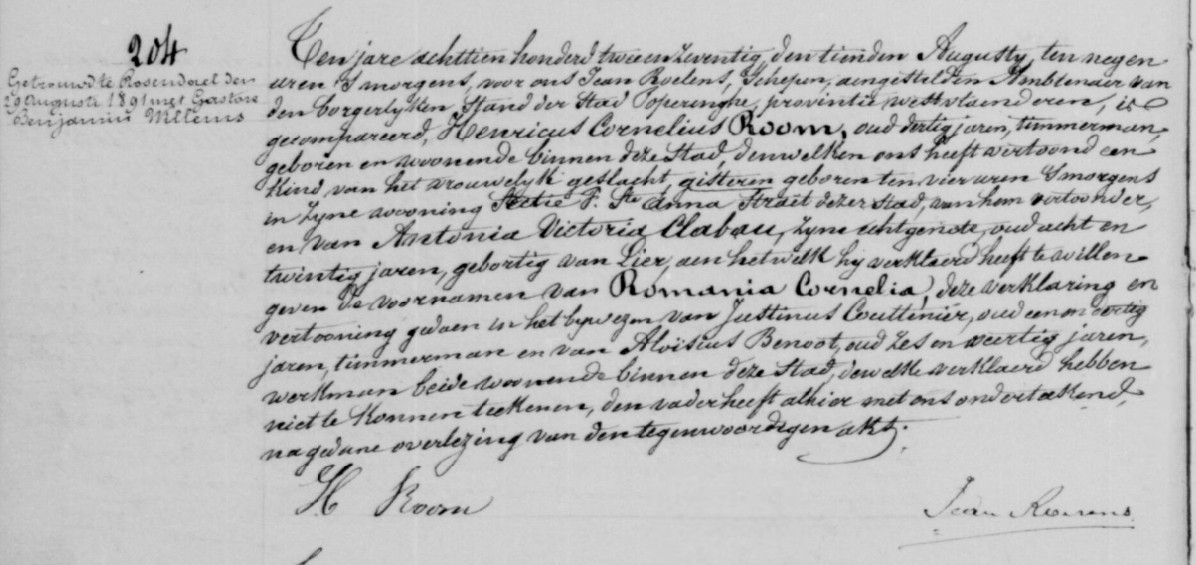 204
Getrouwd te Rosendael den
29 Auguste 1891 met Gastore
Benjamin Willems
Ten jare achttien honderd twee en zeventig, den tienden Augusty, ten negen
uren s'morgens, voor ons Jean Roelens, Schepen, aengestelden Ambtenaer van
den borgerlyken Stand der Stad Poperinghe, provintie westvlaenderen, is
gecompareerd, Henricus Cornelius Room, oud dertig jaren, timmerman,
geboren en woonende binnen deze Stad, denwelken ons heeft vertoond een
Kind van het vrouwelyk geslacht, gisteren geboren ten vier uren s'morgens
in zyne wooning Sectie P. Ste Anna Straet dezer Stad, van hem vertoonder,
en van Antonia Victoria Clabau, zyne echtgenote, oud acht en
twintig jaren, gebortig van Lier, aen hetwelk hy verklaerd heeft te willen
geven de voornamen van Romania Cornelia, deze verklaring en
vertooning gedaen in het bywezen van Justinus Couttenier, oud een en veertig
jaren, timmerman en van Aloïsius Benoot, oud zes en veertig jaren,
werkman beide woonende binnen deze Stad, dewelke verklaerd hebben
niet te konnen teekenen, den vader heeft alhier met ons onderteekend,
na gedane overlezing van den tegenwoordigen akt.
H Room
Jean Roelens